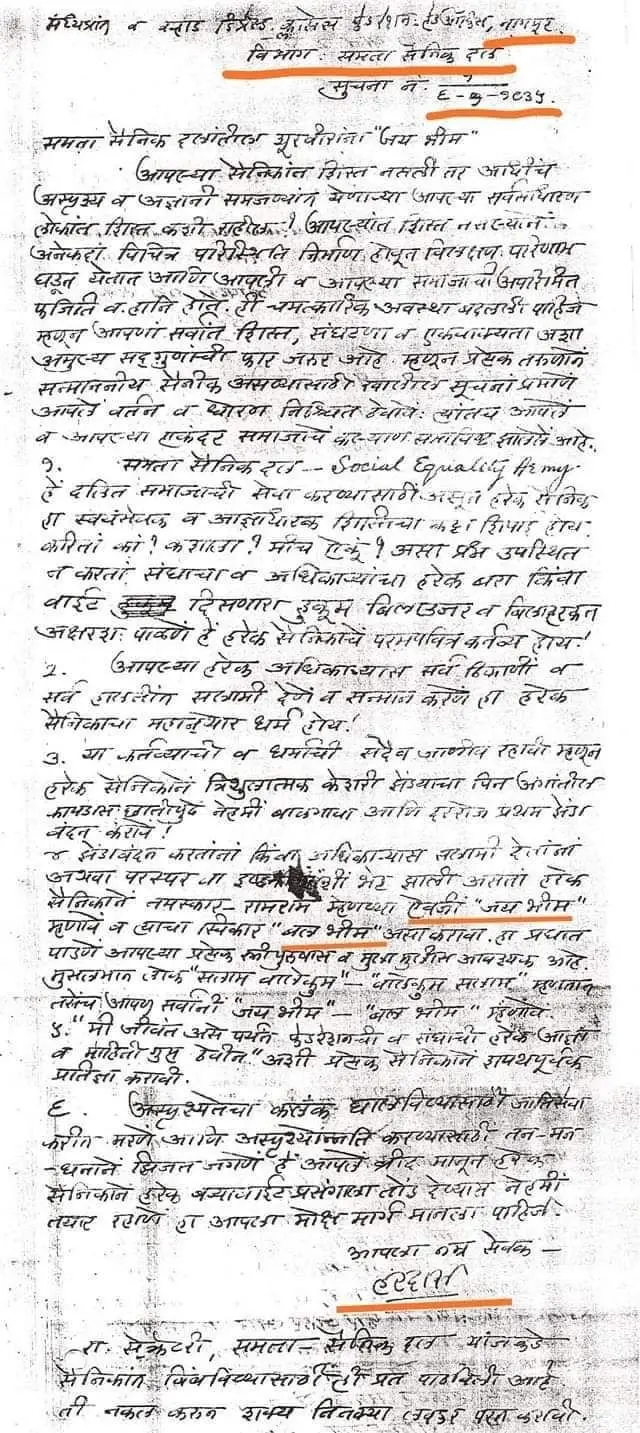 मध्यप्रांत व वऱ्हाड डिप्रेस्ड क्लासेस फेडरेशन: हेडऑफिस, नागपूर.
विभाग. समता सैनिक दल
सुचना नं. १
६-७-१९३५.
समता सैनिक दलांतील शूरवीरांना "जय भीम"
आपल्या सैनिकांत शिस्त नसली तर आधींच
अस्पृश्य व अज्ञानी समजण्यांत येणाऱ्या आपल्या सर्वसाधारण
लोकांत शिस्त कशी राहील? आपल्यांत शिस्त नसल्यानें
अनेकदां विचित्र परिस्थिति निर्माण होवून विलक्षण परिणाम
घडून येतात आणि आपली व आपल्या समाजाची अपरिमित
फजिति व हानि होते. ही चमत्कारिक अवस्था बदलली पाहिजे
म्हणून आपणां सर्वांत शिस्त, संघटणा व एकवाक्यता अशा
अमुल्य सद्गुणांची फार जरुर आहे. म्हणून प्रत्येक तरुणानें
सन्माननीय सैनीक असण्यासाठीं खालील सूचनां प्रमाणें
आपलें वर्तन व धोरण निश्चित ठेवावे: त्यांतच आपलें
व आपल्या एकंदर समाजाचें कल्याण समाविष्ट झालेलें आहे.
१. समता सैनिक दल -- Social Equality Army
हें दलित समाजाची सेवा करण्यासाठीं असून हरेक सैनिक
हा स्वयंसेवक व आज्ञाधारक शिस्तीचा कट्टा शिपाई होय.
करितां कां? कशाला? मीच ऐकूं? असा प्रश्न उपस्थित
न करतां संघाचा व अधिकाऱ्यांचा हरेक बरा किंवा
वाईट दिसणारा हुकूम बिलाउजर व बिलाहरकत
अक्षरशः पाळणें हें हरेक सैनिकाचें परमपवित्र कर्तव्य होय!
2. आपल्या हरेक अधिकाऱ्यास सर्व ठिकाणीं व
सर्व हालतींत सलामी देणें व सन्मान करणें हा हरेक
सैनिकाचा धर्म होय!
३. या कर्तव्याची व धर्माची सदैव जाणीव रहावी म्हणून
हरेक सैनिकानें त्रिशुलात्मक केशरी झेंड्याचा पिन अंगांतील
कापडास छातीपुढे नेहमीं बाळगावा आणि दररोज प्रथम झेंडा
वंदन करावें!
४ झेंडावंदन करतांना किंवा अधिकाऱ्यास सलामी देतांनां
अथवा परस्पर वा भेट झाली असतां हरेक
सैनिकानें नमस्कार- रामराम म्हणण्या ऐवजीं "जय भीम"
म्हणावें व त्याचा स्विकार "बल भीम" असा करावा. हा प्रघात
पाडणें आपल्या प्रत्येक स्त्रीपुरुषास व मुला मुलीस आवश्यक आहे.
मुसलमान लोक "सलाम वालेकुम" - "वालेकुम सलाम" म्हणतात
तसेंच आपण सर्वांनीं "जय भीम" - "बल भीम" म्हणावें.
५. "मी जीवंत असे पर्यंत फेडरेशनची व संघाची हरेक आज्ञा
व माहिती गुप्त ठेवीन." अशी प्रत्येक सैनिकानें शपथपूर्वक
प्रतिज्ञा करावी.
६. अस्पृश्यतेचा कलंक घालविण्यासाठीं जातिसेवा
करीत मरणें आणि अस्पृश्योन्नति करण्यासाठीं तन-मन
-धनानें झिजत जगणें हें आपलें ब्रीद मानून हरेक
सैनिकानें हरेक बऱ्यावाईट प्रसंगाला तोंड देण्यास नेहमीं
तयार रहाणें हा आपला मोक्ष मार्ग मानला पाहिजे.
आपला नम्र सेवक -
हरदास
रा. सेक्रेटरी, समता- सैनिक दल यांजकडे
सैनिकांत बिंबविण्यासाठीं ही प्रत पाठविली आहे
ती नकल करुन शक्य तितक्या लवकर परत करावी.